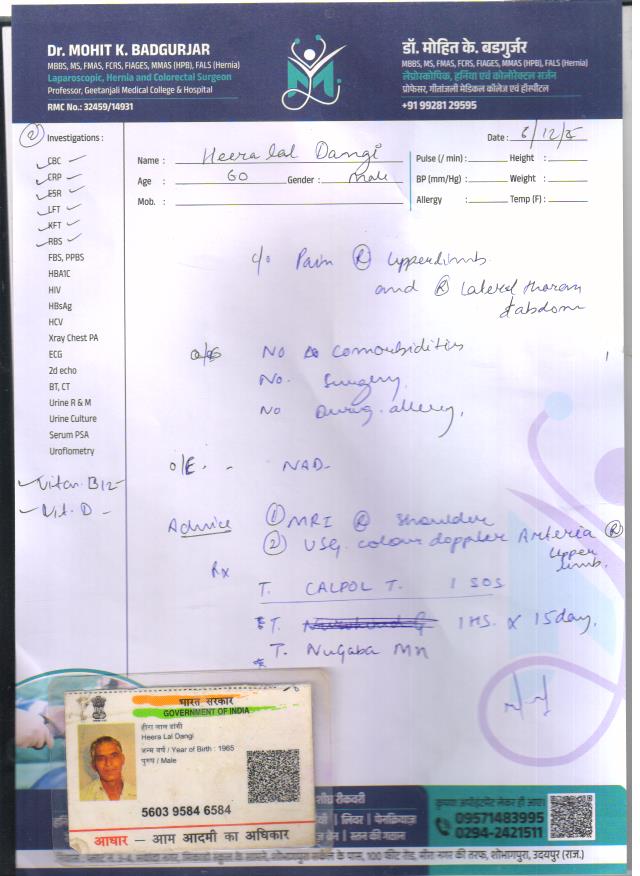 Dr. MOHIT K. BADGURJAR
MBBS, MS, FMAS, FCRS, FIAGES, MMAS (HPB), FALS (Hernia)
Laparoscopic, Hernia and Colorectal Surgeon
Professor, Geetanjali Medical College & Hospital
RMC No.: 32459/14931
डॉ. मोहित के. बडगुर्जर
MBBS, MS, FMAS, FCRS, FIAGES, MMAS (HPB), FALS (Hernia)
लेप्रोस्कोपिक, हर्निया एवं कोलोरेक्टल सर्जन
प्रोफेसर, गीतांजली मेडिकल कॉलेज एवं हॉस्पीटल
+91 99281 29595
Date : 6/12/25
② Investigations :
CBC
CRP
ESR
LFT
KFT
RBS
FBS, PPBS
HBA1C
HIV
HBsAg
HCV
Xray Chest PA
ECG
2d echo
BT, CT
Urine R & M
Urine Culture
Serum PSA
Uroflometry
Vitan. B12
Vit. D
Name : Heera lal Dangi
Age : 60 Gender : male
Mob. :
Pulse (/ min) : Height :
BP (mm/Hg) : Weight :
Allergy : Temp (F) :
c/o Pain Ⓡ upperlimb
and Ⓡ lateral thorax
&abdom
No comorbidities
No. Surgery.
No Durig. allergy,
O/E. - NAD-
Advice ① MRI Ⓡ shoulder
② USG. colour doppler Arteria Ⓡ
upper
limb.
Rx
T. CALPOL T. 1 SOS
T. 1 HS. x 15day.
T. Nugaba Mn
भारत सरकार
GOVERNMENT OF INDIA
हीरा लाल डांगी
Heera Lal Dangi
जन्म वर्ष / Year of Birth : 1965
पुरुष / Male
5603 9584 6584
आधार – आम आदमी का अधिकार
शीघ्र रीकवरी
कृपया अपॉइंटमेंट लेकर ही आएं।
09571483995
0294-2421511
100 फीट रोड, मीरा नगर की तरफ, शोभागपुरा, उदयपुर (राज.)